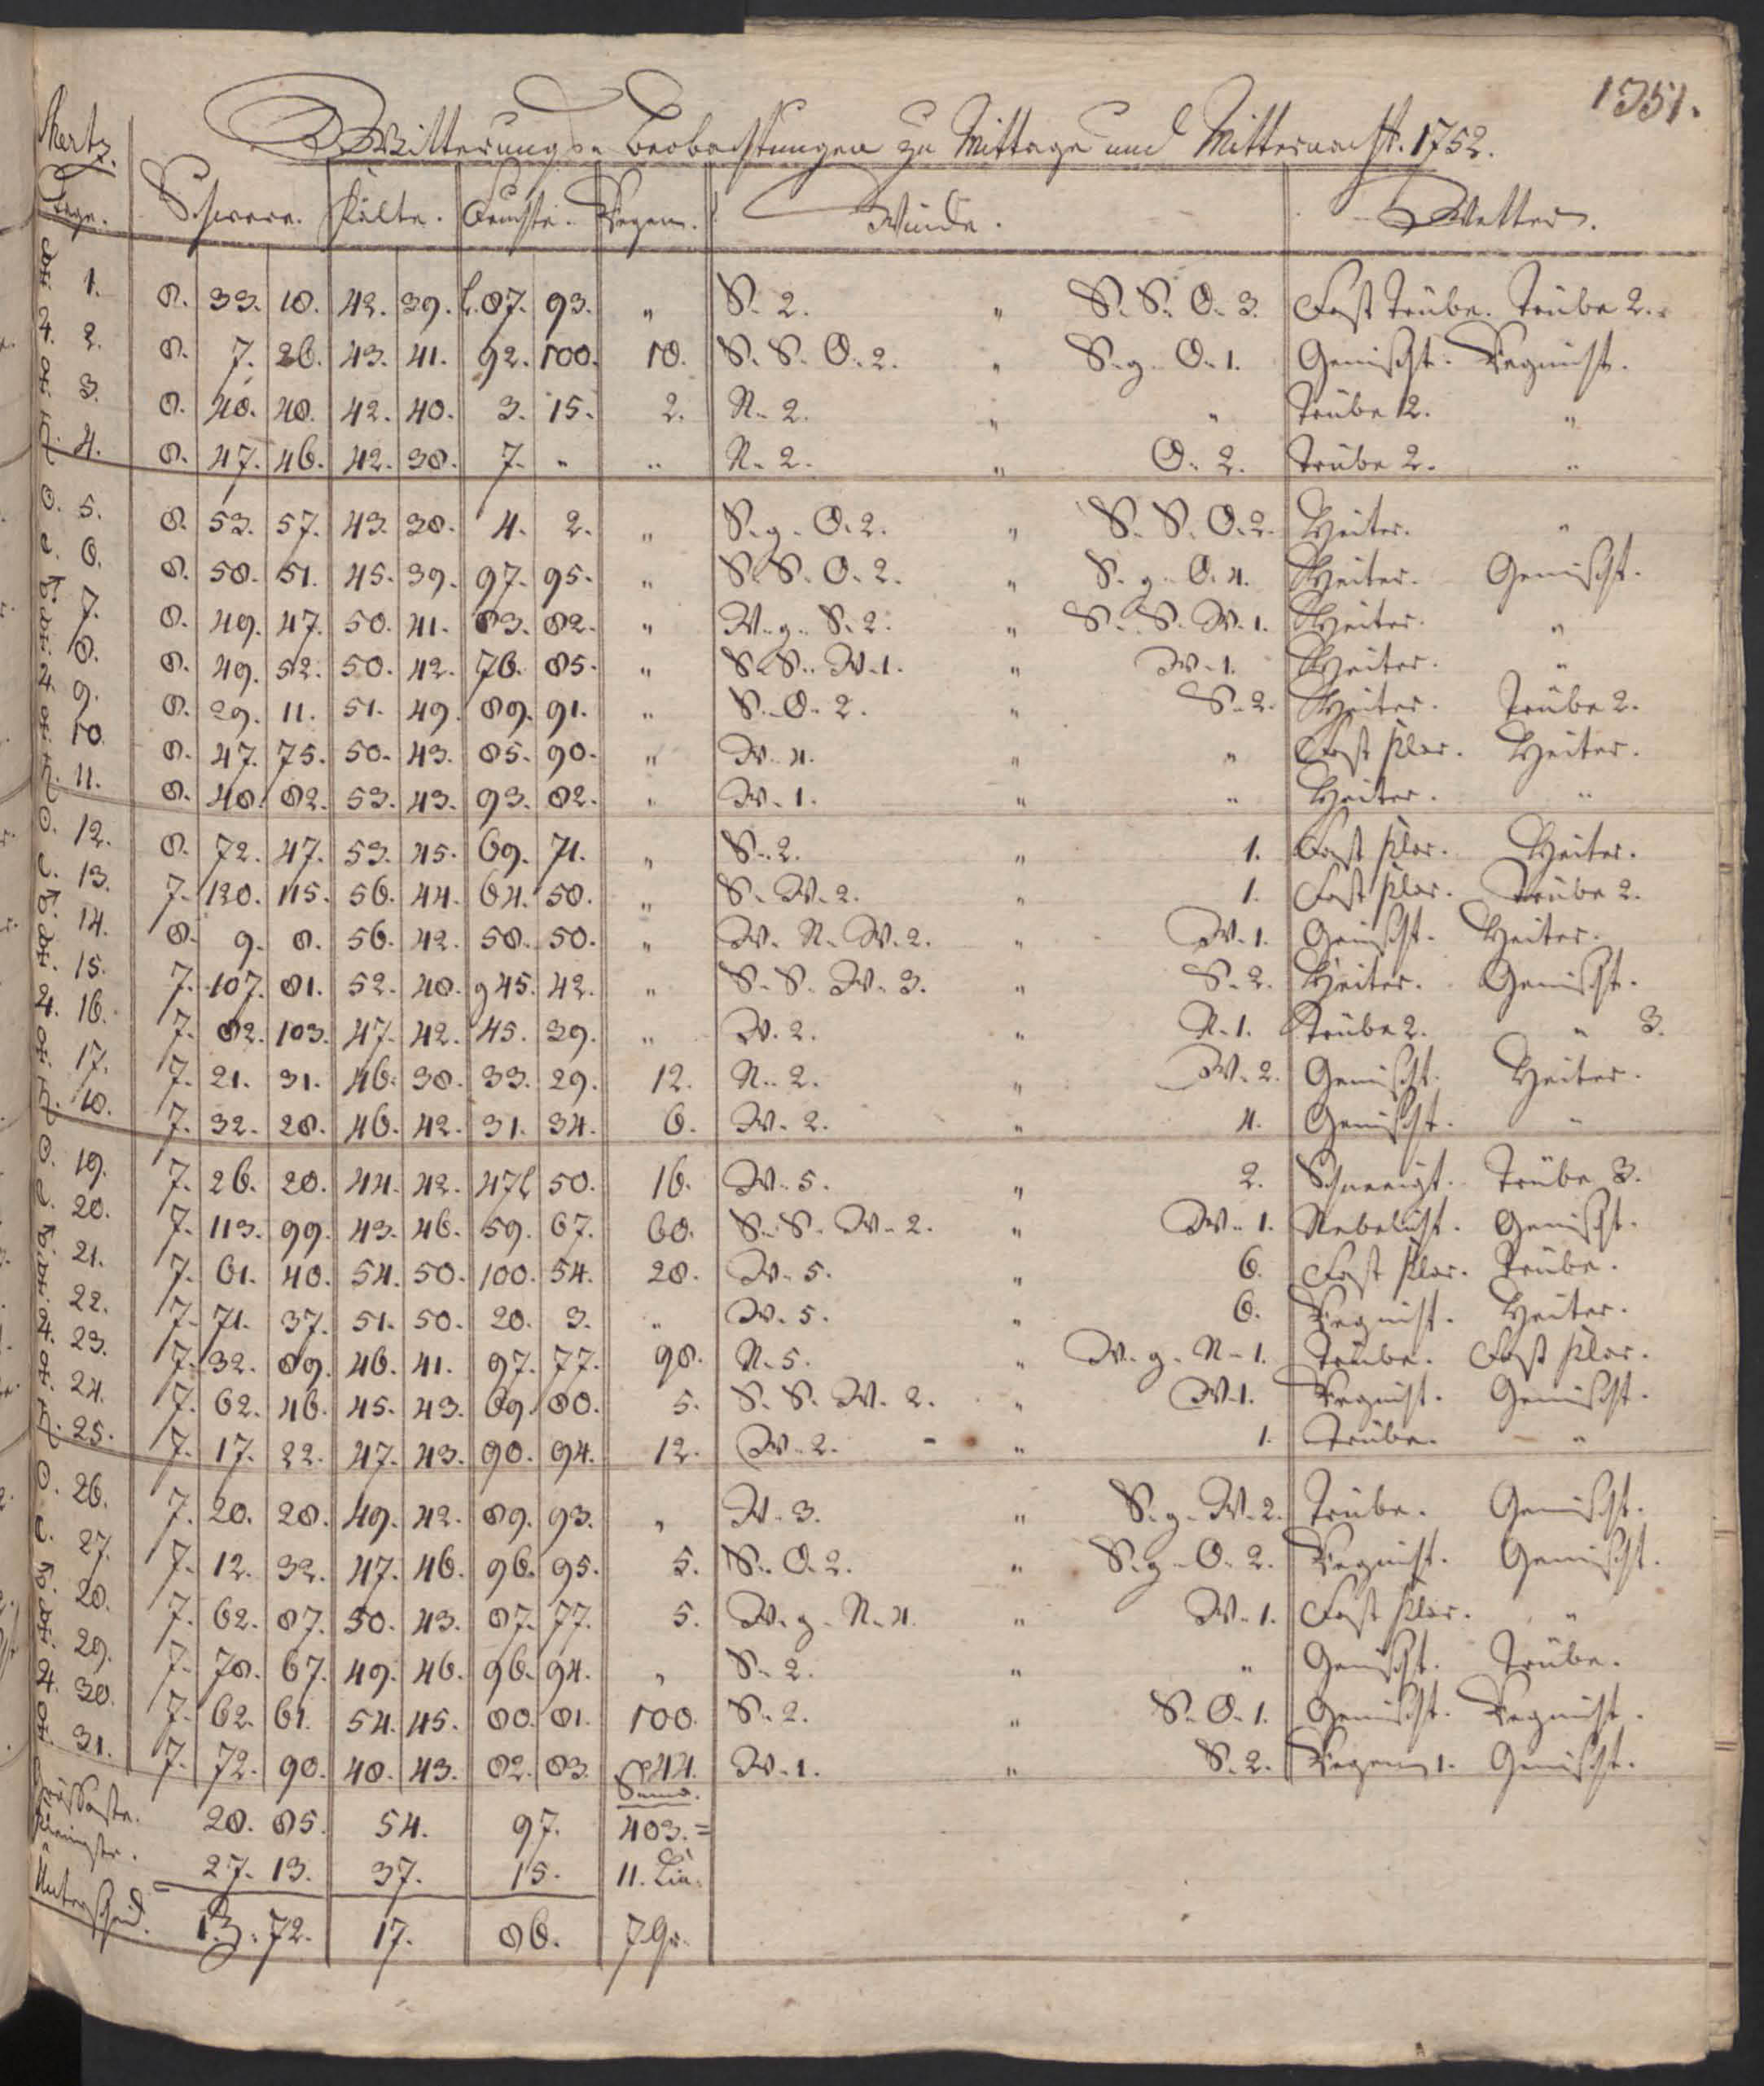 1351.
Mertz.
Witterungs-Beobachtungen zu Mittage und Mitternacht. 1752.
Tage. Schwere. Kälte. Feuchte. Regen. Winde. Wetter.
☿. 1. 8. 33. 18. 42. 39. 87. 93. „ S. 2. „ S. S. O. 3. Fast trübe. Trübe 2.
♃. 2. 8. 7. 26. 43. 41. 92. 100. 10. S. S. O. 2. „ S. g. O. 1. Gemischt. Regnicht.
♀. 3. 8. 40. 48. 42. 40. 3. 15. 2. N. 2. „ „ Trübe 2. „
♄. 4. 8. 47. 46. 42. 38. 7. „ „ N. 2. „ O. 2. Trübe 2. „
☉. 5. 8. 53. 57. 43. 38. 4. 2. „ S. g. O. 2. „ S. S. O. 2. Heiter. „
☾. 6. 8. 58. 51. 45. 39. 97. 95. „ S. S. O. 2. „ S. g. O. 4. Heiter. Gemischt.
♂. 7. 8. 49. 47. 50. 41. 83. 82. „ W. g. S. 2. „ S. S. W. 1. Heiter. „
☿. 8. 8. 49. 52. 50. 42. 76. 85. „ S. S. W. 1. „ W. 1. Heiter. „
♃. 9. 8. 29. 11. 51. 49. 89. 91. „ S. O. 2. „ S. 2. Heiter. Trübe 2.
♀. 10. 8. 47. 75. 50. 43. 85. 90. „ W. 4. „ „ Fast klar. Heiter.
♄. 11. 8. 48. 82. 53. 43. 93. 82. „ W. 1. „ „ Heiter. „
☉. 12. 8. 72. 47. 53. 45. 69. 71. „ S. 2. „ 1. Fast klar. Heiter.
☾. 13. 7. 120. 115. 56. 44. 64. 50. „ S. W. 2. „ 1. Fast klar. Trübe 2.
♂. 14. 8. 9. 8. 56. 42. 58. 50. „ W. N. W. 2. „ W. 1. Gemischt. Heiter.
☿. 15. 7. 107. 81. 52. 48. 45. 42. „ S. S. W. 3. „ S. 2. Heiter. Gemischt.
♃. 16. 7. 82. 103. 47. 42. 45. 39. „ W. 2. „ N. 1. Trübe 2. „ 3.
♀. 17. 7. 21. 31. 46. 38. 33. 29. 12. N. 2. „ W. 2. Gemischt. Heiter.
♄. 18. 7. 32. 28. 46. 42. 31. 34. 6. W. 2. „ 4. Gemischt. „
☉. 19. 7. 26. 20. 44. 42. 47 50. 16. W. 5. „ 2. Schneeigt. Trübe 3.
☾. 20. 7. 113. 99. 43. 46. 59. 67. 60. S. S. W. 2. „ W. 1. Nebelicht. Gemischt.
♂. 21. 7. 61. 40. 54. 50. 100. 54. 28. W. 5. „ 6. Fast klar. Trübe.
☿. 22. 7. 71. 37. 51. 50. 20. 3. „ W. 5. „ 6. Regnicht. Heiter.
♃. 23. 7. 32. 89. 46. 41. 97. 77. 98. N. 5. „ W. g. N. 1. Trübe. Fast klar.
♀. 24. 7. 62. 46. 45. 43. 69. 80. 5. S. S. W. 2. „ W. 1. Regnicht. Gemischt.
♄. 25. 7. 17. 22. 47. 43. 90. 94. 12. W. 2. „ 1. Trübe. „
☉. 26. 7. 20. 28. 49. 42. 89. 93. „ W. 3. „ S. g. W. 2. Trübe. Gemischt.
☾. 27. 7. 12. 32. 47. 46. 96. 95. 5. S. O. 2. „ S. g. O. 2. Regnicht. Gemischt.
♂. 28. 7. 62. 87. 50. 43. 87. 77. 5. W. g. N. 4. „ W. 1. Fast klar. „
☿. 29. 7. 78. 67. 49. 46. 96. 94. „ S. 2. „ „ Gemischt. Trübe.
♃. 30. 7. 62. 61. 54. 45. 80. 81. 100. S. 2. „ S. O. 1. Gemischt. Regnicht.
♀. 31. 7. 72. 90. 48. 43. 82. 83. 44. W. 1. „ S. 2. Regen 1. Gemischt.
Summ.
Grösseste. 28. 85. 54. 97. 403. =
Kleinste. 27. 13. 37. 15. 11. Lin.
Unterscheid. 1. 3. 72. 17. 86. 7 Gr.